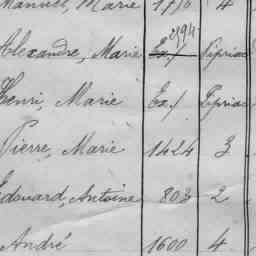 Manuel, Marie 1716 4
Alexandre, Marie Ex. 794 Pipriac
Henri, Marie Ex. Pipriac
Pierre, Marie 1424 3
Edouard, Antoine 803 2
André 1600 4